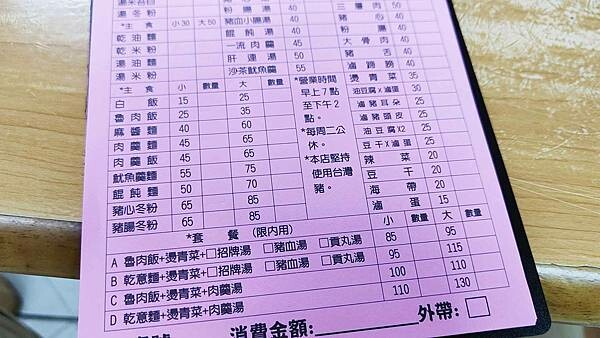 湯冬粉
*主 食 小30 大50
乾油麵
乾米粉
湯油麵
湯米粉
粉腸湯 40
豬血小腸湯 40
餛飩湯 40
一流肉羹 45
肝連湯 50
沙茶魷魚羹 55
三層肉 50
豬心 40
粉腸 40
大骨肉 40
豬舌 40
滷蹄膀 40
*主 食 小 數量 大 數量
白飯 15 25
魯肉飯 25 35
麻醬麵 40 60
肉羹麵 45 65
肉羹飯 45 65
魷魚羹麵 55 75
餛飩麵 50 70
豬心冬粉 65 85
豬腸冬粉 65 85
*營業時間
早上7點
至下午2
點。
*每周二公
休。
*本店堅持
使用台灣
豬。
燙青菜 35
油豆腐X滷蛋 25
滷豬耳朵 25
滷豬頭皮 25
油豆腐X2 25
豆干X滷蛋 25
辣菜 20
豆干 20
海帶 20
滷蛋 15
*套 餐 (限內用) 小 數量 大 數量
A 魯肉飯+燙青菜+□招牌湯 □豬血湯 □貢丸湯 85 95
B 乾意麵+燙青菜+□招牌湯 □豬血湯 □貢丸湯 95 115
C 魯肉飯+燙青菜+肉羹湯 100 110
D 乾意麵+燙青菜+肉羹湯 110 130
消費金額: 外帶: □